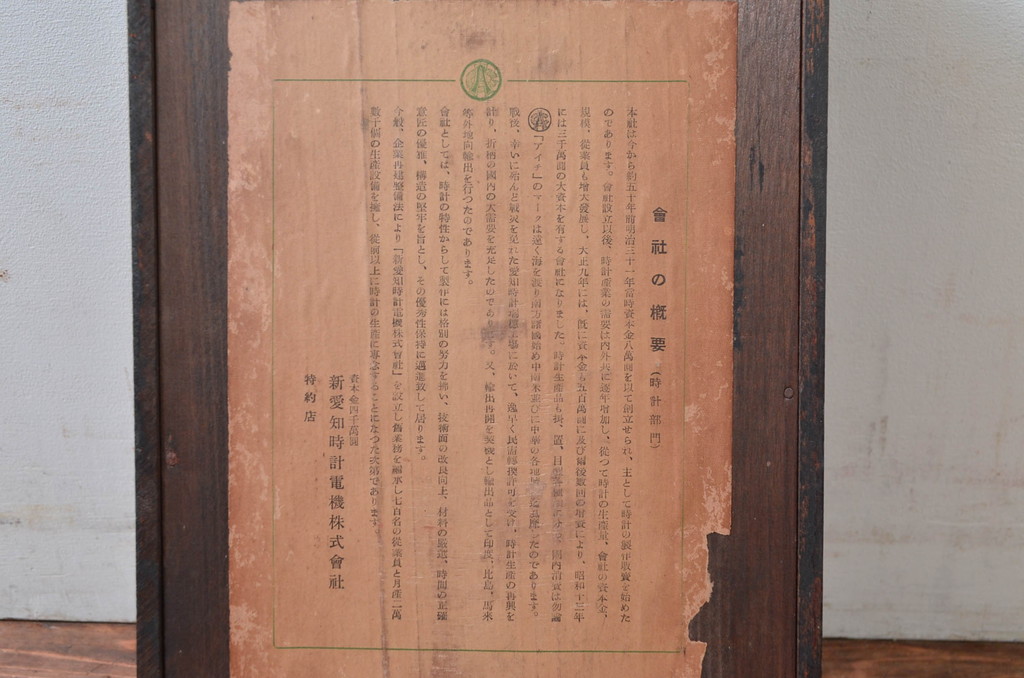 會社の概要（時計部門）
本社は今から約五十年前明治三十一年當時資本金八萬圓を以て創立せられ、主として時計の製作販賣を始めた
のであります。會社設立以後、時計産業の需要は内外共に逐年増加し、從つて時計の生産量、會社の資本金、
規模、從業員も増大發展し、大正九年には、既に資本金も五百萬圓に及び爾後數囘の増資により、昭和十三年
には三千萬圓の大資本を有する會社になりました。時計生産品も掛、置、目覺 國内消費は勿論
「アイチ」のマークは遠く海を渡り南方諸國始め中南米並びに中華の各地 たのであります。
戰後、幸いに殆んど戰災を免れた愛知時計電機工場に於いて、逸早く民需轉換許可を受け、時計生産の再興を
計り、折柄の國内の大需要を充足したのであります。又、輸出再開を契機とし輸出品として印度、比島、馬來
等外地向輸出を行つたのであります。
會社としては、時計の特性からして製作には格別の努力を拂い、技術面の改良向上、材料の嚴選、時間の正確
意匠の優雅、構造の堅牢を旨とし、その優秀性保持に邁進致して居ります。
今般、企業再建整備法により「新愛知時計電機株式會社」を設立し舊業務を繼承し七百名の從業員と月産二萬
數千個の生産設備を擁し、從前以上に時計の生産に專念することになつた次第であります。
資本金四千萬圓
新愛知時計電機株式會社
特約店